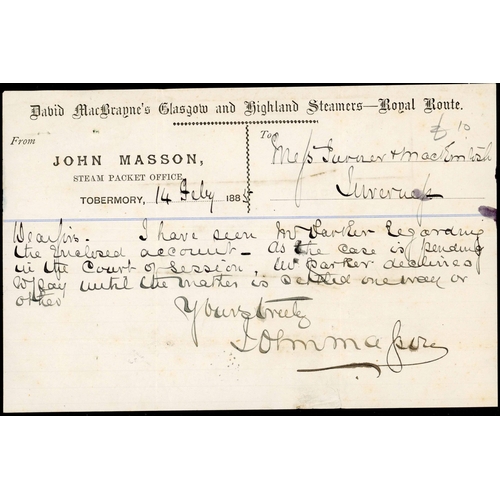 David MacBrayne's Glasgow and Highland Steamers—Royal Route.
From
To
JOHN MASSON,
STEAM PACKET OFFICE,
TOBERMORY, 14 July 188
Mess Turner & MacKintosh
Inverness
Dear Sirs. I have seen Mr Parker regarding
the Enclosed account - As the case is pending
in the Court of Session, Mr Parker declines
to pay until the matter is settled one way or
other
Yours truly
John Masson